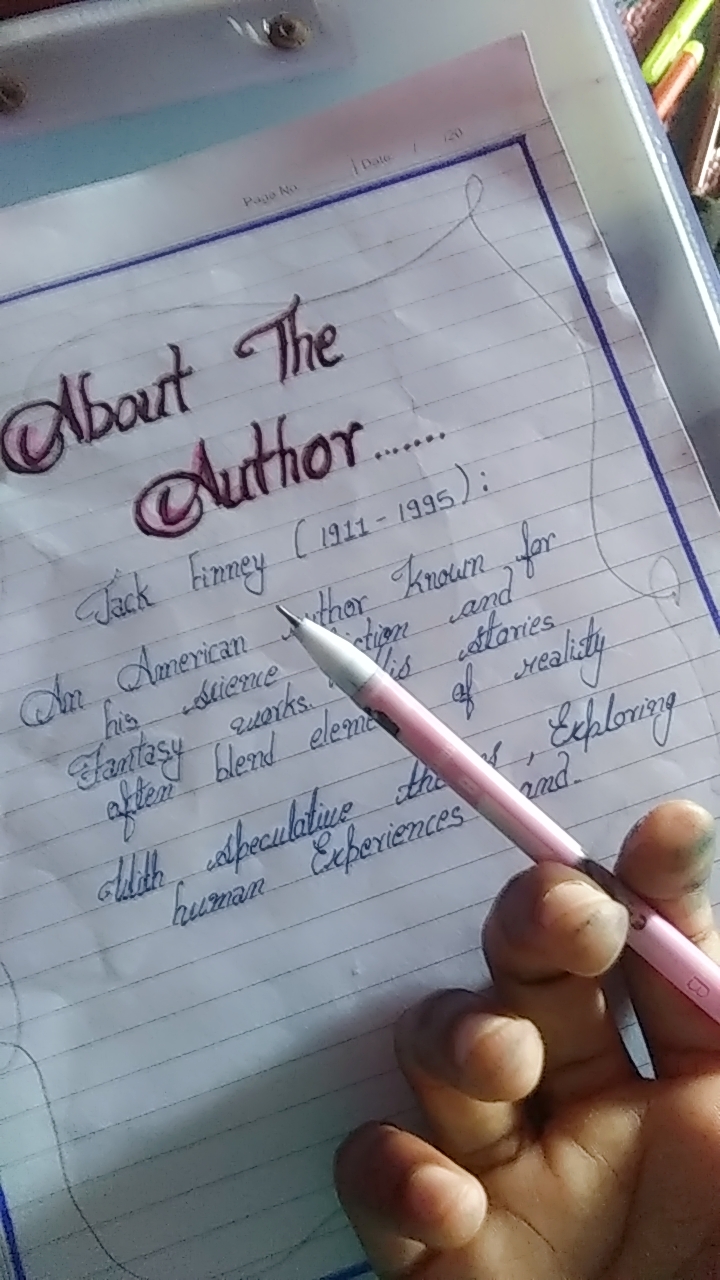 Page No. Date / /20
About The
Author.......
Jack Finney (1911-1995):
An American author Known for
his science fiction and
Fantasy works. his stories
often blend elements of reality
With speculative themes, Exploring
human Experiences and.
B